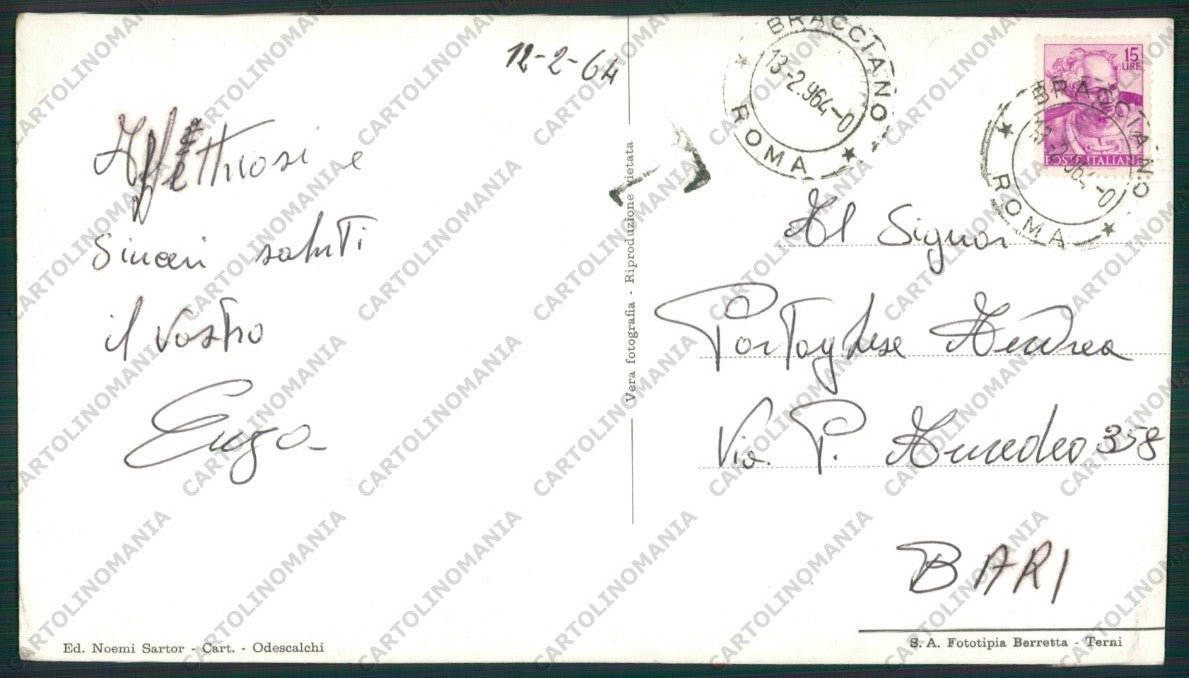 12-2-64
Affettuosi e
sinceri saluti
il vostro
Enzo
Ed. Noemi Sartor - Cart. - Odescalchi
Vera fotografia - Riproduzione vietata
BRACCIANO
13-2.964-0
ROMA
15
LIRE
POSTE ITALIANE
BRACCIANO
13-2.964-0
ROMA
Al Signor
Portoghese Andrea
Via P. Amedeo 358
BARI
S. A. Fototipia Berretta - Terni
CARTOLINOMANIA